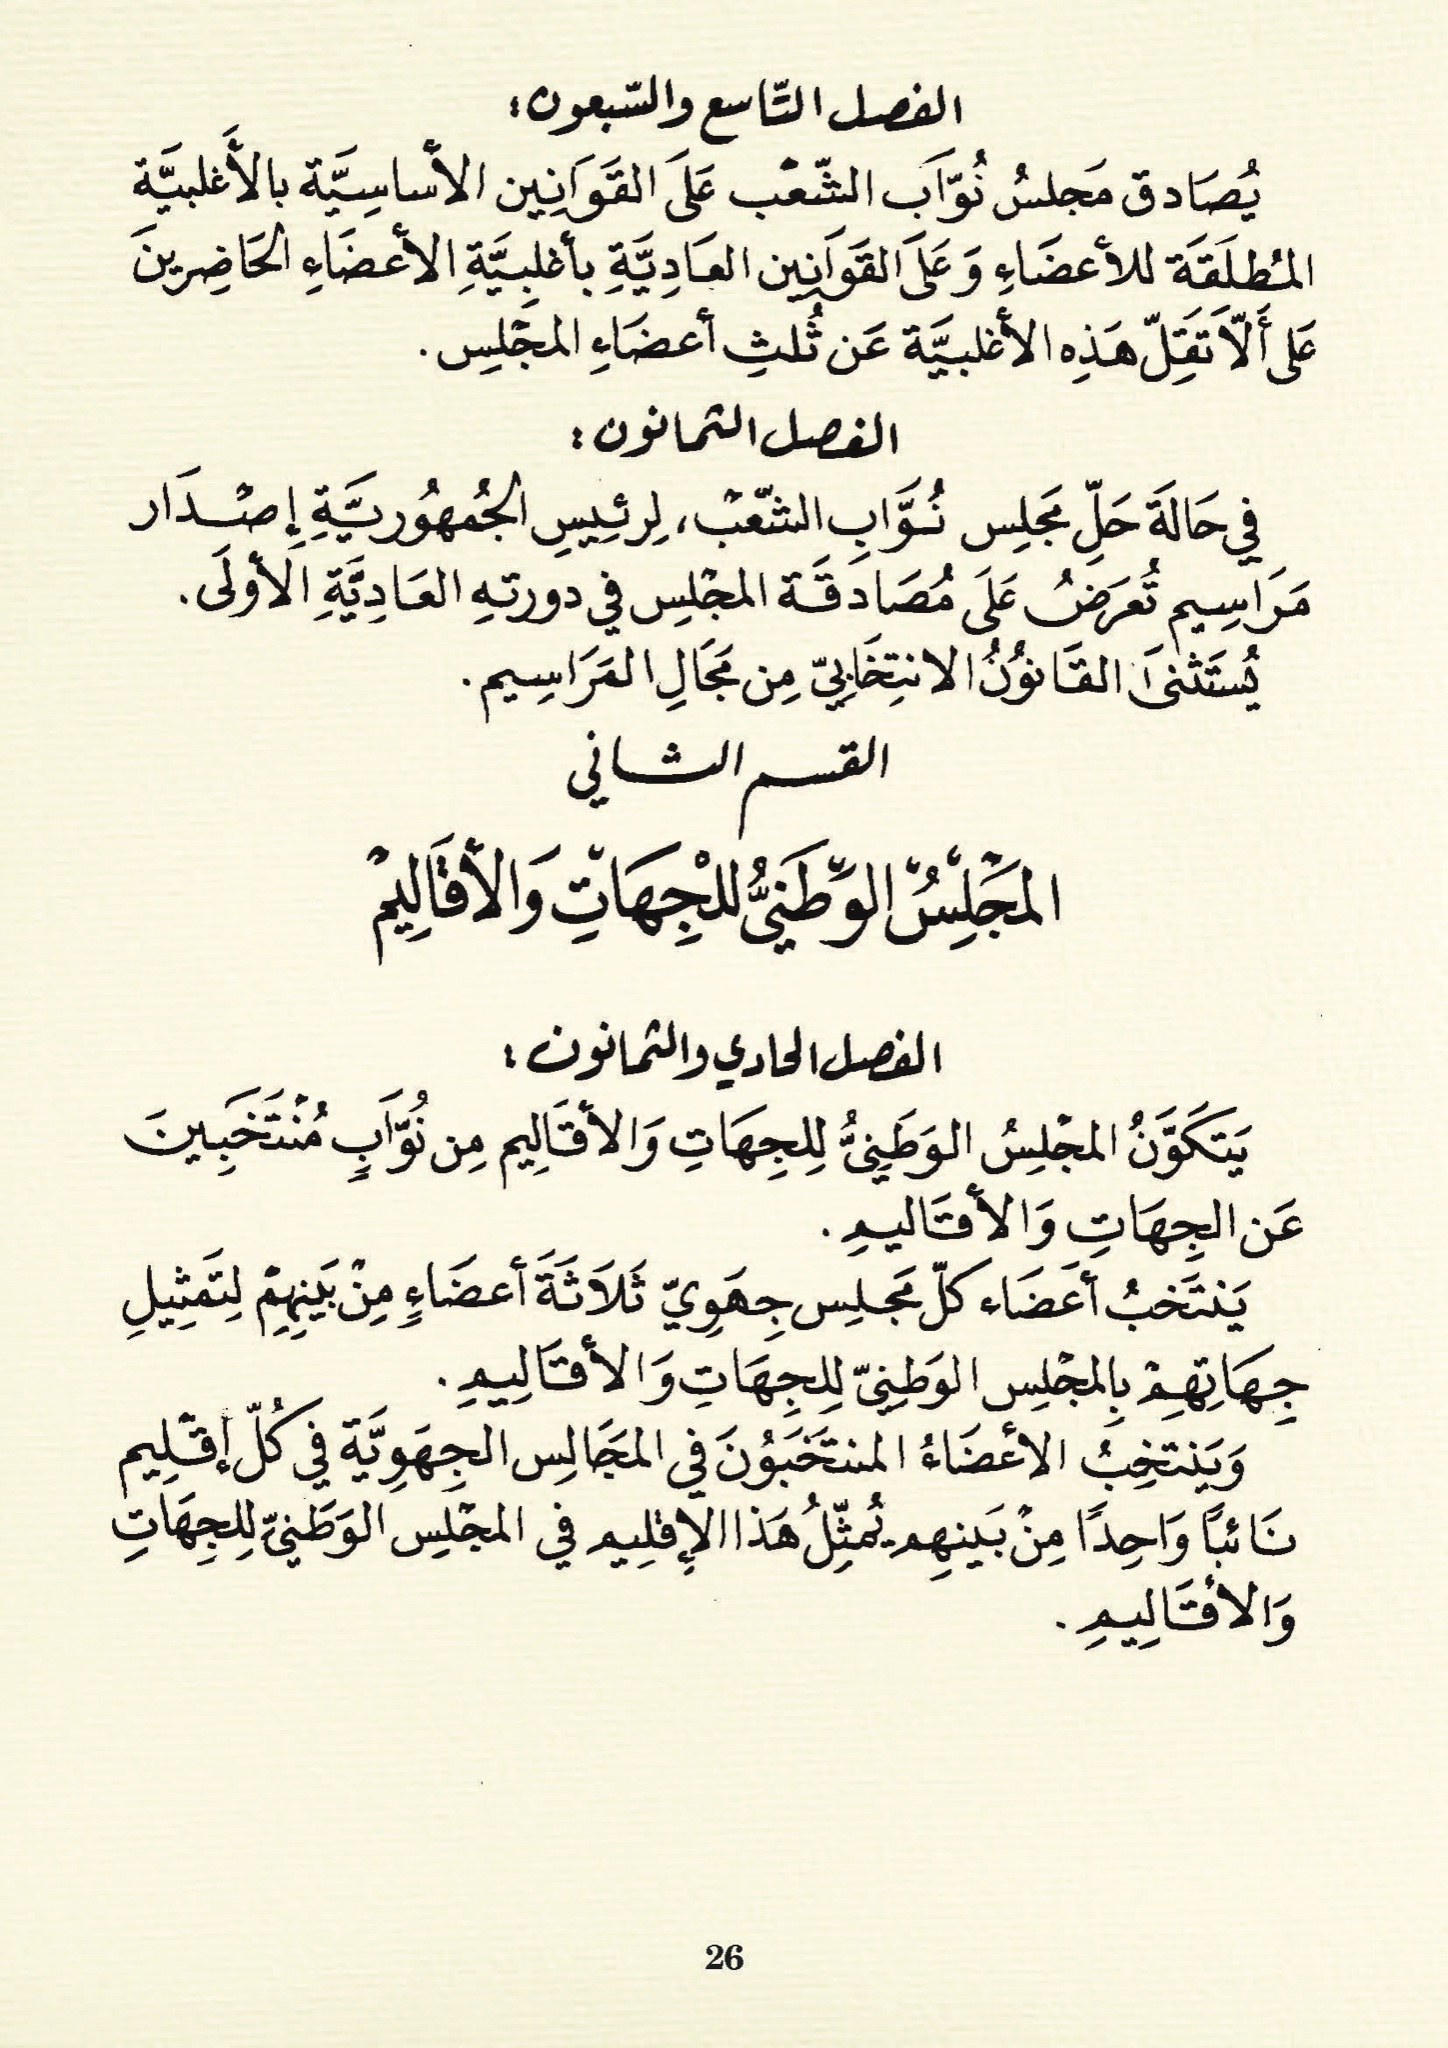 الفصل التّاسع والسّبعون:
يُصَادق مَجلسُ نُوّاَب الشّعْب عَلَى القَوَانِين الأساسِيَّة بالأَغلبيَّة
المُطلَقَة للأعضَاءِ وَعَلَى القَوَانِين العَادِيَّةِ بأغلِبِيَّةِ الأعضَاءِ الحَاضِرينَ
عَلى أَلّا تَقِلّ هَذِه الأغلبيَّة عَن ثُلثِ أعضَاءِ المجْلِس.
الفصل الثمانون:
في حَالَة حَلِّ مَجلِس نُوَّابِ الشّعْب، لِرئِيسِ الجُمهُوريَّةِ إصْدَار
مَرَاسِيم تُعرَضُ عَلَى مُصَادقَة المجْلِس في دورتهِ العَادِيَّةِ الأولَى.
يُستَثنىَ القَانوُنُ الانتِخَابِيّ مِن مَجَالِ المَرَاسِيم.
القسم الثاني
المَجْلِسُ الوَطَنيُّ للْجِهَاتِ وَالأَقَالِيمْ
الفصل الحادي والثمانون:
يَتكَوَّنُ المجْلِسُ الوَطَنِيُّ لِلجِهَاتِ وَالأقَالِيم مِن نُوّاَبٍ مُنْتَخَبِينَ
عَن الجِهَاتِ وَالأقَاليمِ.
يَنتَخبُ أعَضَاء كلّ مَجلِس جِهَوِيّ ثَلاَثَةَ أعضَاءٍ مِنْ بَينِهِمْ لِتَمثِيلِ
جِهَاتِهِمْ بِالمجْلِس الوَطِنيّ لِلجِهَاتِ وَالأقَالِيمِ.
وَيَنتخِبُ الأعْضَاءُ المنتَخَبَوُنَ في المجَالِس الجِهَوِيَّة في كُلّ إقْلِيم
نَائبًا وَاحِدًا مِنْ بَينهِم يُمثِّلُ هَذا الإِقلِيم في المجْلِس الوَطَنيّ لِلجِهَاتِ
وَالأقَالِيمِ.
26